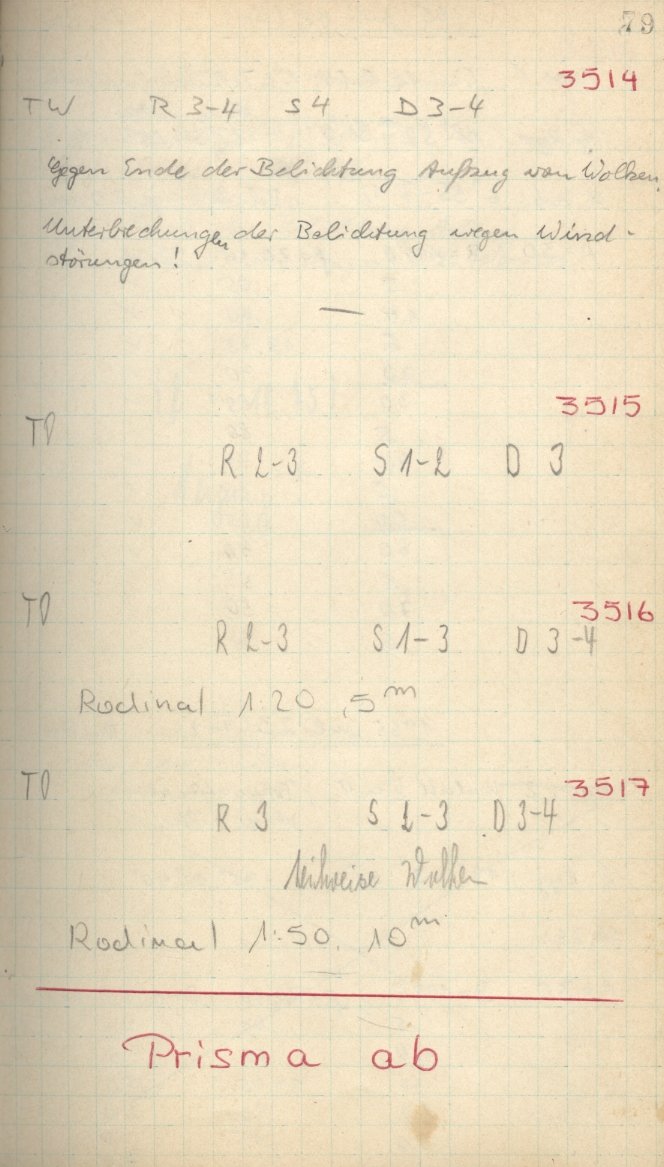 79
3514
TW R 3-4 S 4 D 3-4
Gegen Ende der Belichtung Aufzug von Wolken.
Unterbrechungen der Belichtung wegen Wind-
störungen!
3515
R 2-3 S 1-2 D 3
3516
R 2-3 S 1-3 D 3-4
Rodinal 1:20, 5m
3517
R 3 S 2-3 D 3-4
teilweise Wolken
Rodinal 1:50, 10m
Prisma ab